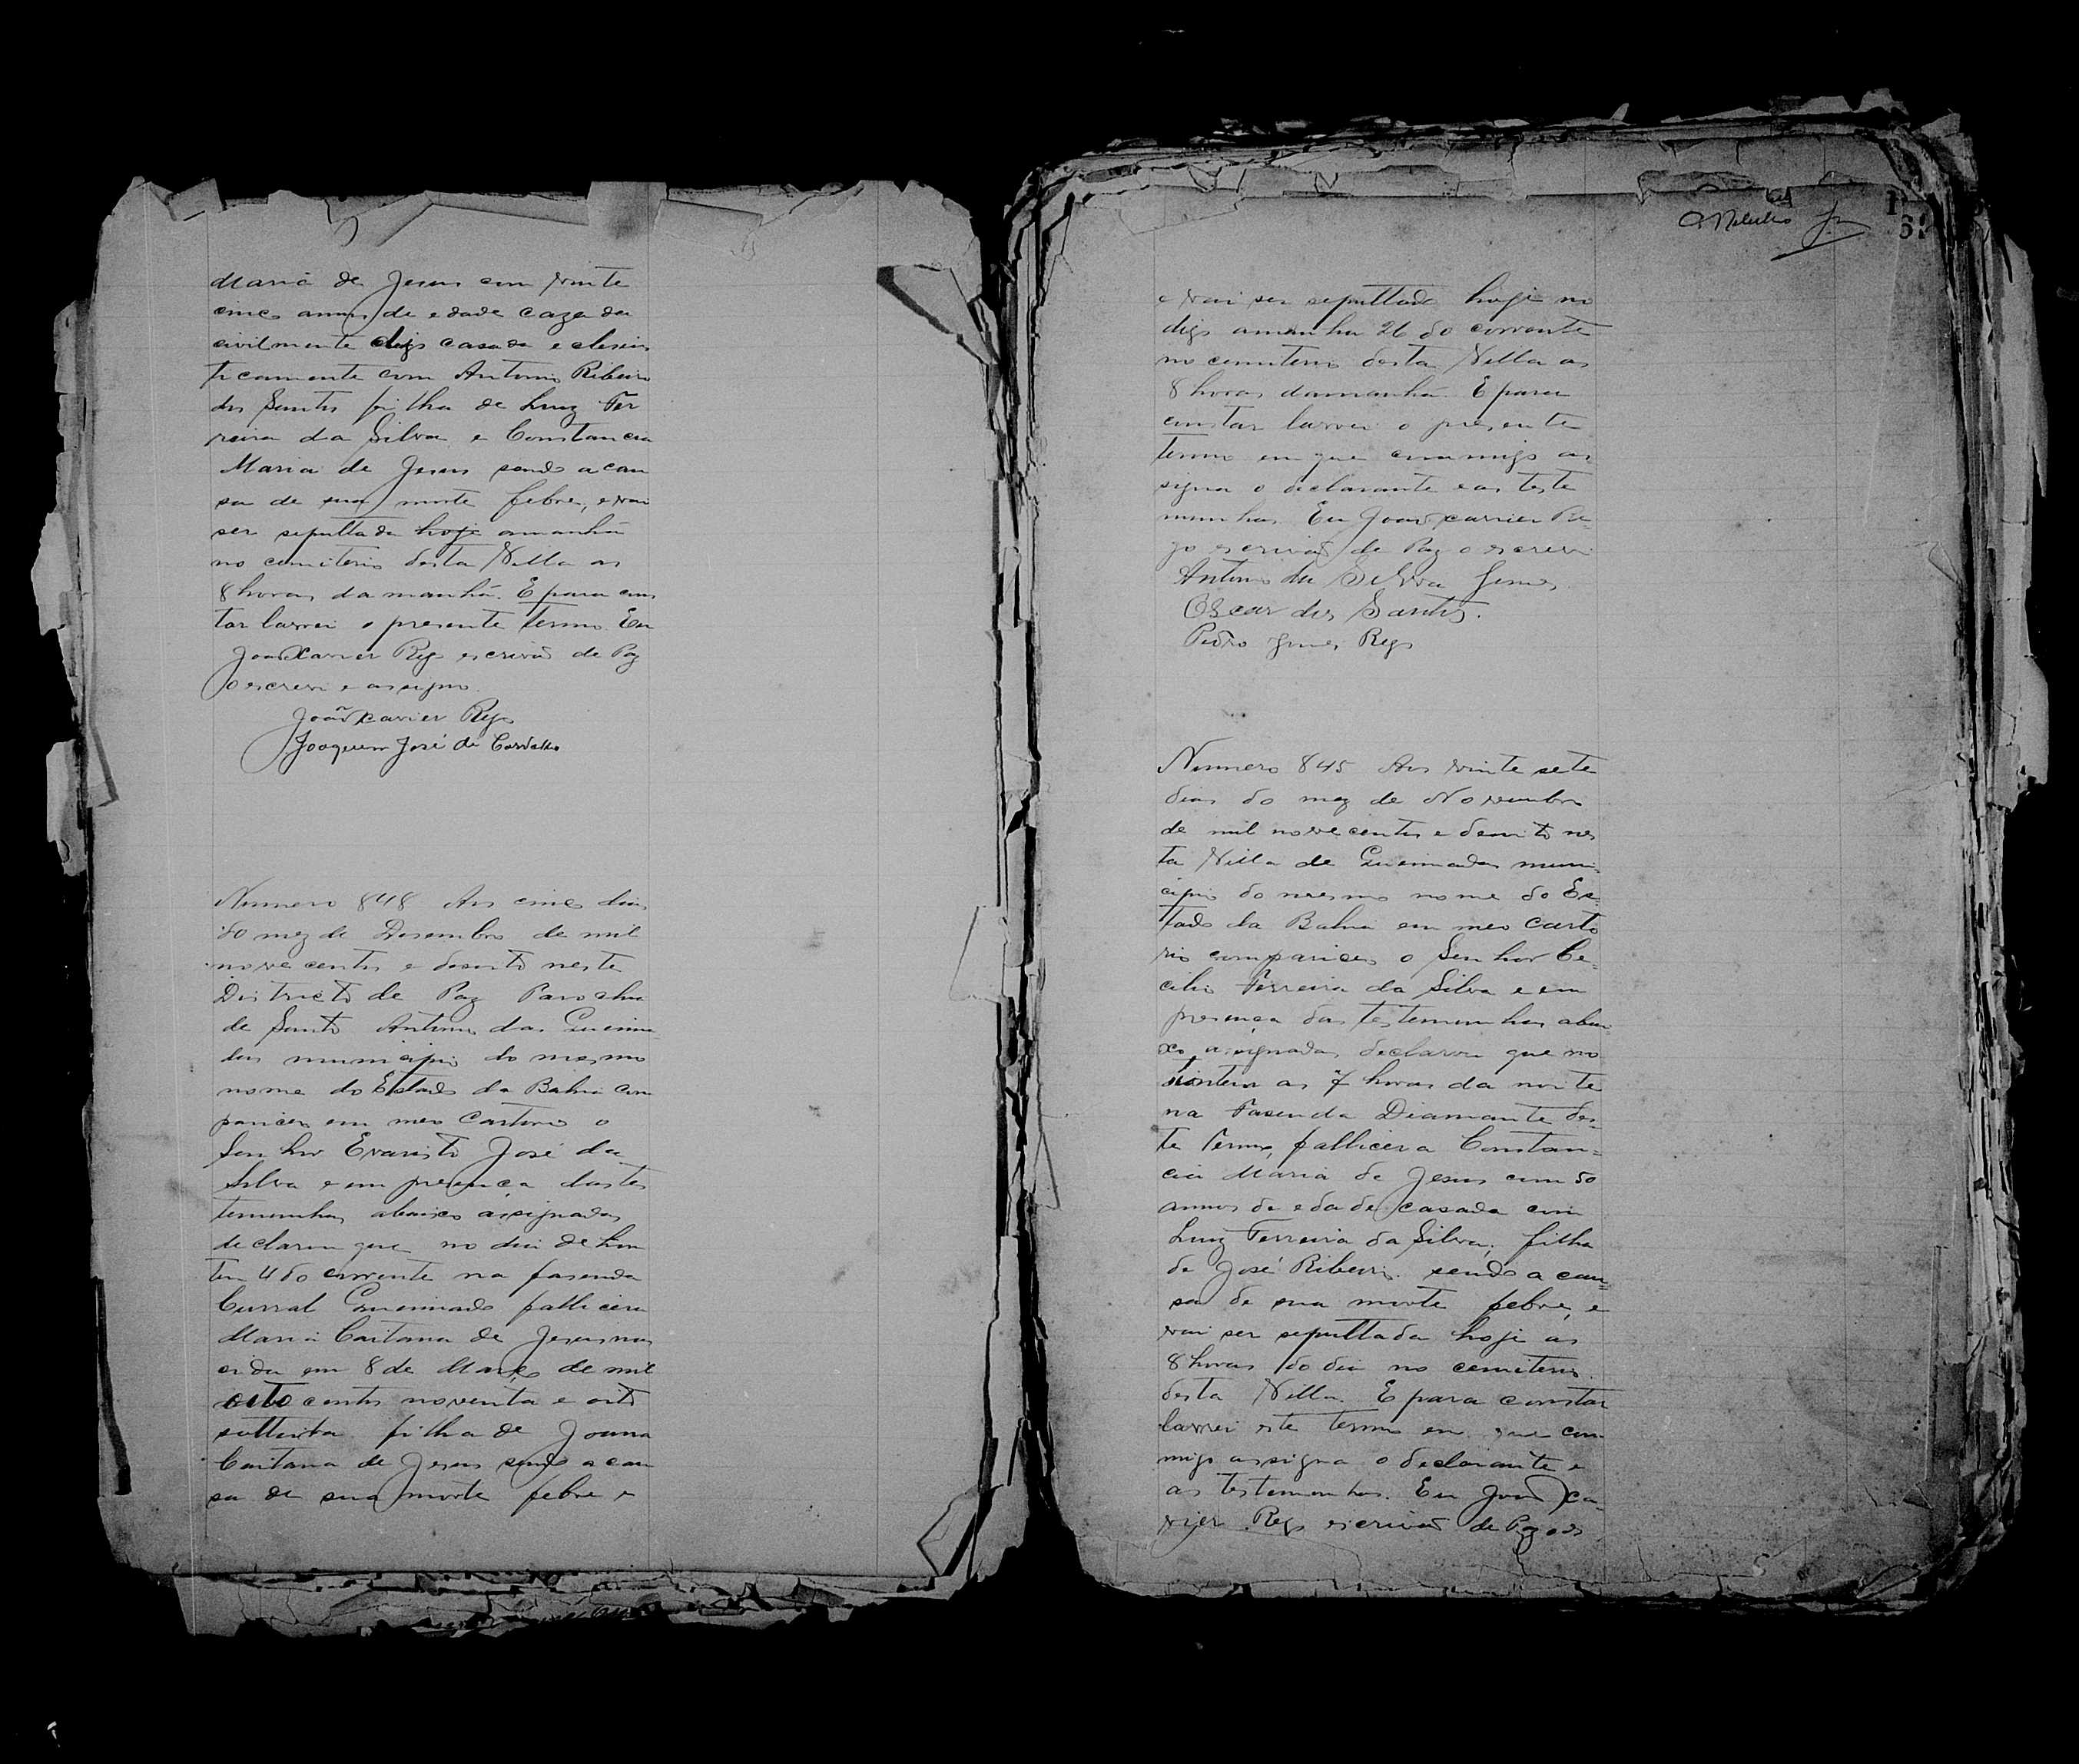 Maria de Jesus com vinte
cinco annos de edade cazada
civilmente digo casada eclesias
ticamente com Antonio Ribeiro
dos Santos filha de Luiz Fer
reira da Silva e Constancia
Maria de Jesus sendo a cau
sa de sua morte febre, e vai
ser sepultada hoje amanhã
no cemiterio desta Villa as
8 horas da manhã. E para cons
tar lavrei o presente termo. Eu
João Xavier Rego escrivão de Paz
o escrevi e assigno.
João Xavier Rego
Joaquim José de Carvalho
Numero 848 Aos cinco dias
do mez de Desembro de mil
nove centos e desoito neste
Districto de Paz Parochia
de Santo Antonio das Queima
das municipio do mesmo
nome do Estado da Bahia com
pareceo em meo Cartorio o
Senhor Evaristo José da
Silva e em presença das tes
temunhas abaixo assignadas
declarou que no dia de hon
tem 4 do corrente na fasenda
Curral Queimado falleceu
Maria Caitana de Jesus nas
cida em 8 de Março de mil
oito centos noventa e oito
solteira filha de Joana
Caitana de Jesus sendo a cau
sa de sua morte febre e
e vai ser sepultada hoje no
digo amanha 26 do corrente
no cemiterio desta Villa as
8 horas damanhã. E para
constar lavrei o presente
termo em que commigo as
signa o declarante e as teste
munhas. Eu João Xavier Re-
go escrivão de Paz o escrevi
Antonio da Silva Gomes
Oscar dos Santos.
Pedro Gomes Rego
Numero 845 Aos vinte sete
dias do mez de Novembro
de mil nove centos e desoito nes
ta Villa de Queimadas muni
cipio do mesmo nome do Es
tado da Bahia em meo carto
rio compareceo o Senhor Ce-
cilio Ferreira da Silva e em
presença das testemunhas abai
xo assignadas, declarou que no
hontem as 7 horas da noite
na Fasenda Diamante des-
te Termo, fallecera Constan-
cia Maria de Jesus com 50
annos de edade casada com
Luiz Ferreira da Silva, filha
de José Ribeiro. sendo a cau-
sa de sua morte febre, e
vai ser sepultada hoje as
8 horas do dia no cemiterio
desta Villa. E para constar
lavrei este termo em que com
migo assigna o declarante e
as testemunhas. Eu João Xa-
vier Rego escrivão de Paz o es